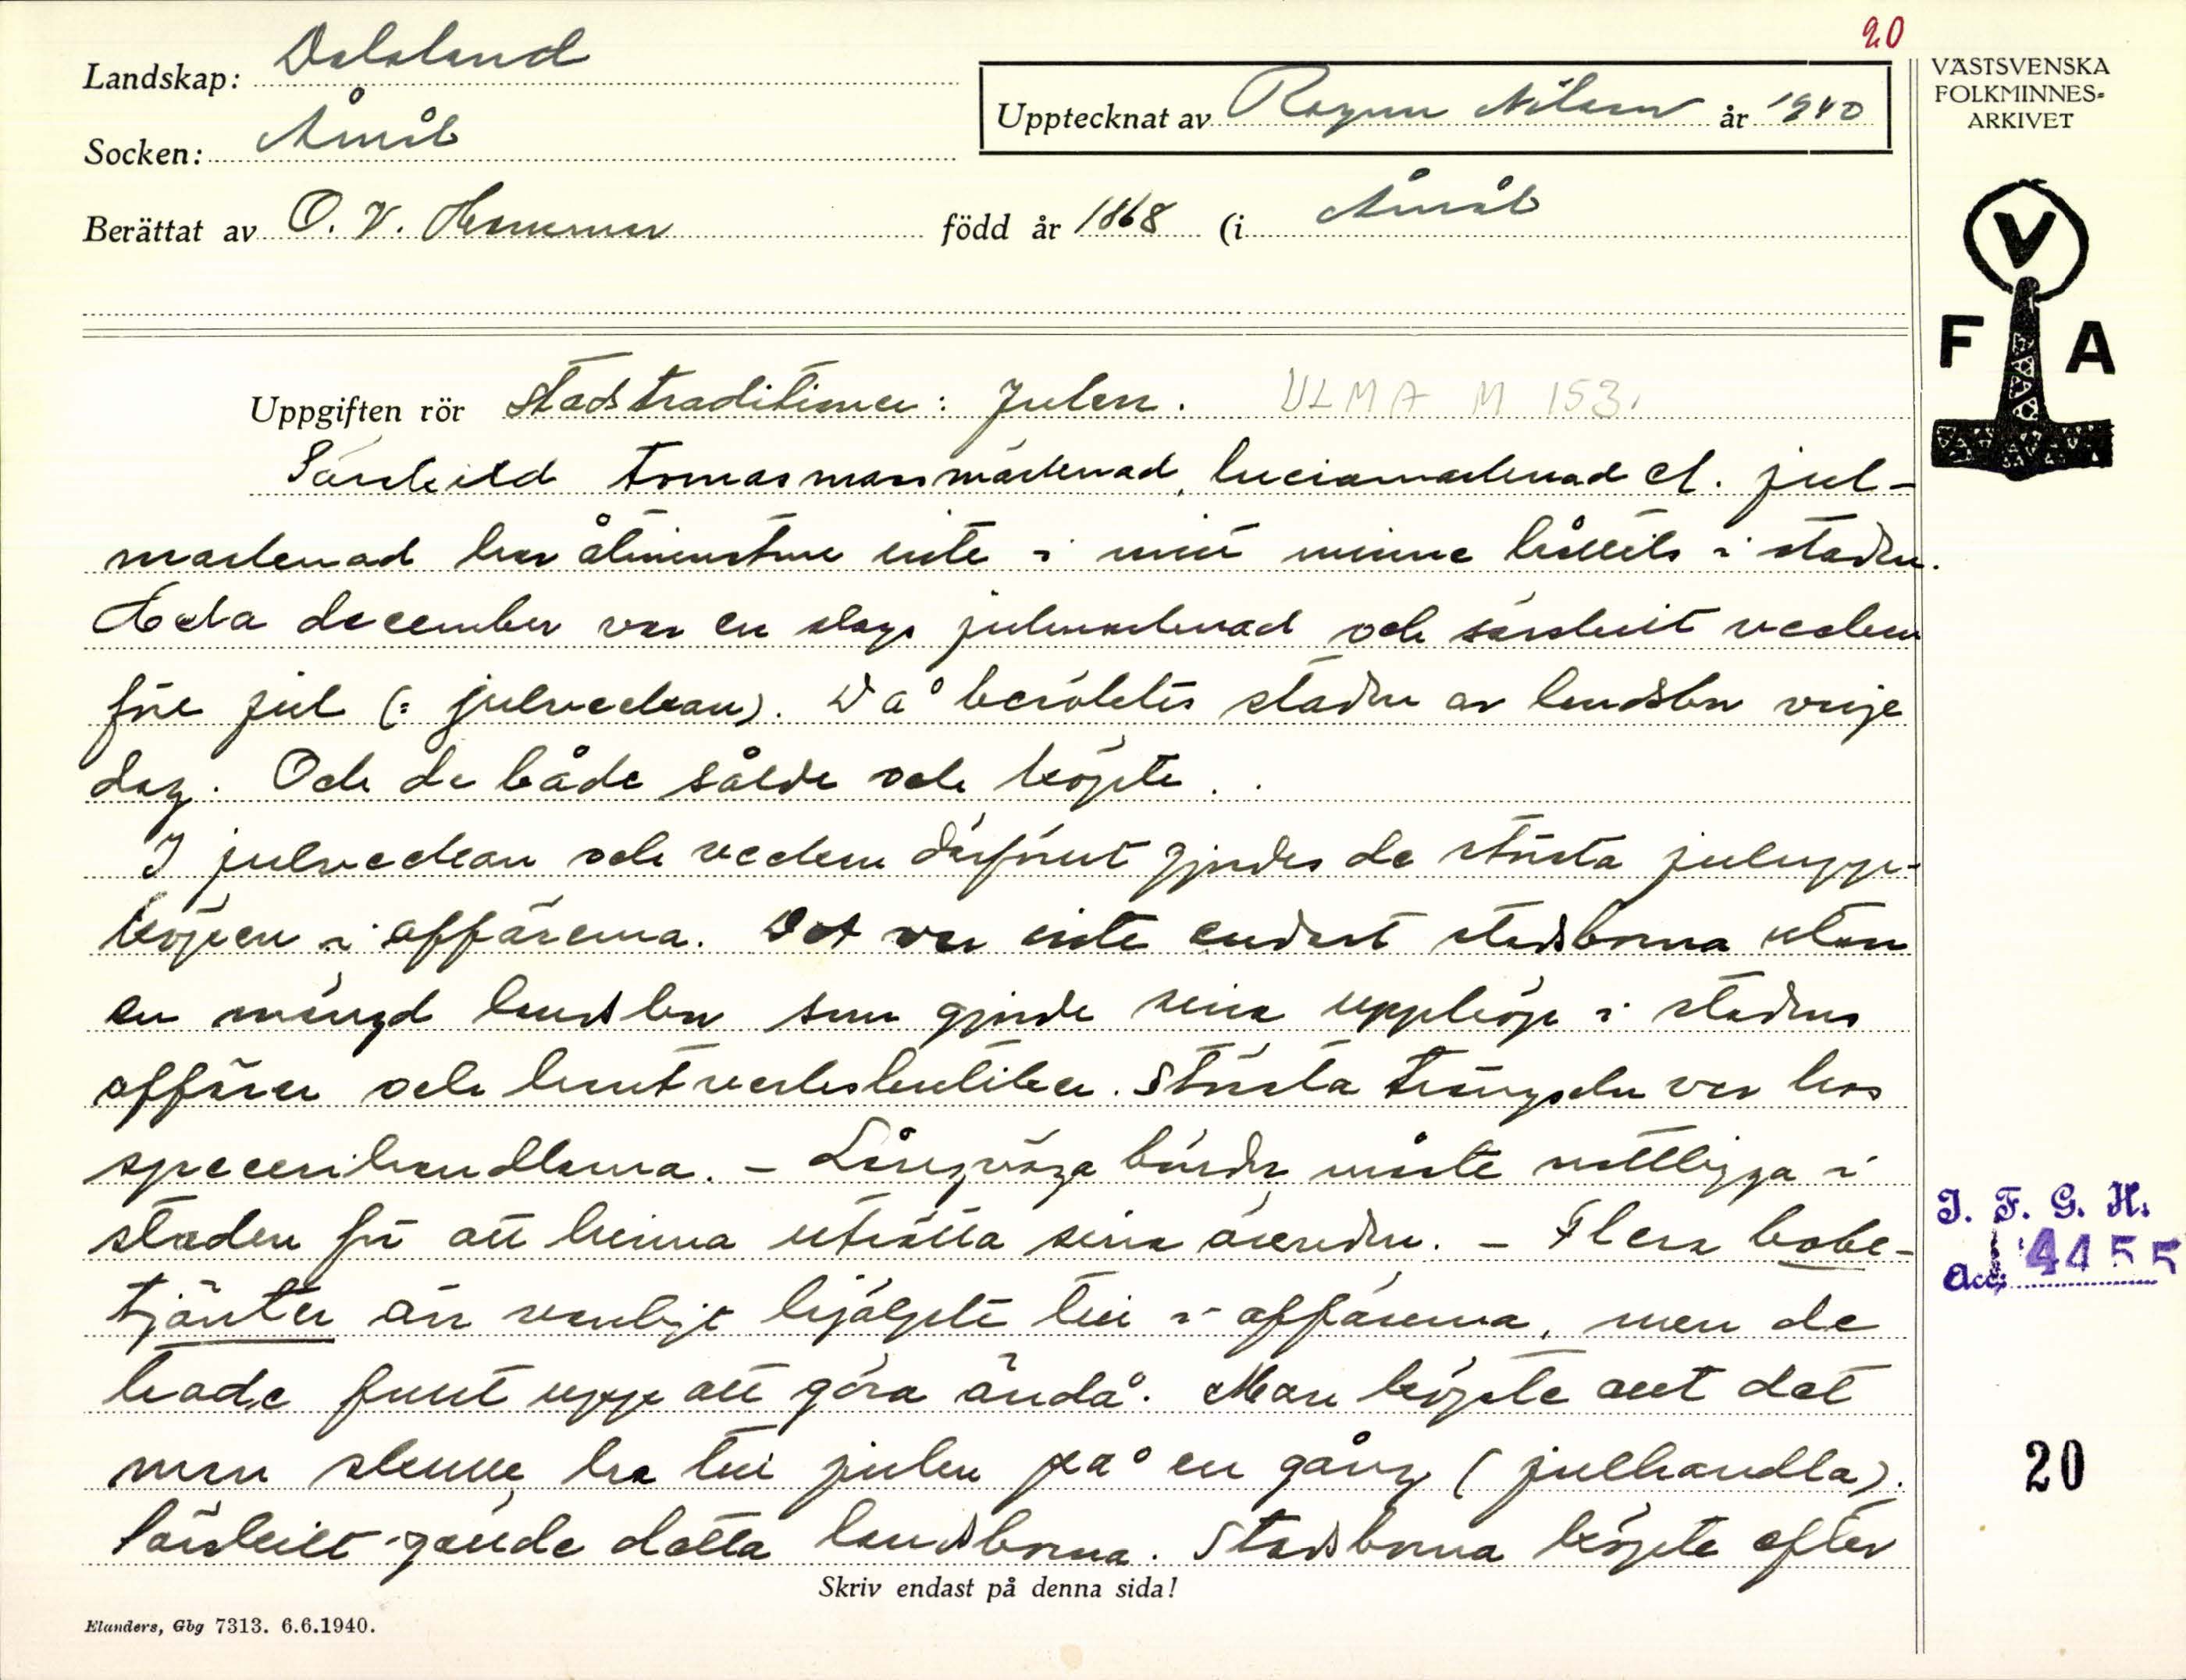 20
Landskap: Dalsland
Socken: Åmål
Upptecknat av Ragnar Nilsson år 1940
Berättat av O. V. Hammar född år 1868 (i Åmål
VÄSTSVENSKA
FOLKMINNES-
ARKIVET
V
F A
Uppgiften rör Stadstraditioner: Julen. ULMA M 153.
Särskild tomasmässmarknad, luciamarknad el. jul-
marknad har åtminstone inte i mitt minne hållits i staden.
Hela december var en slags julmarknad och särskilt veckan
före jul (= julveckan). Då besöktes staden av landsbor varje
dag. Och de både sålde och köpte.
I julveckan och veckan därförut gjordes de största julupp-
köpen i affärerna. Det var inte endast stadsborna utan
en mängd landsbor som gjorde sina uppköp i stadens
affärer och hantverksbutiker. Största trängseln var hos
specerihandlarna. – Långväga bönder måste nattligga i
staden för att hinna uträtta sina ärenden. – Flera bobe-
tjänter än vanligt hjälpte till i affärerna, men de
hade fullt upp att göra ändå. Man köpte allt det
man skulle ha till julen på en gång (julhandla).
Särskilt gällde detta landsborna. Stadsborna köpte efter
Skriv endast på denna sida!
Elanders, Gbg 7313. 6.6.1940.
I. F. G. H.
Acc: 4455
20